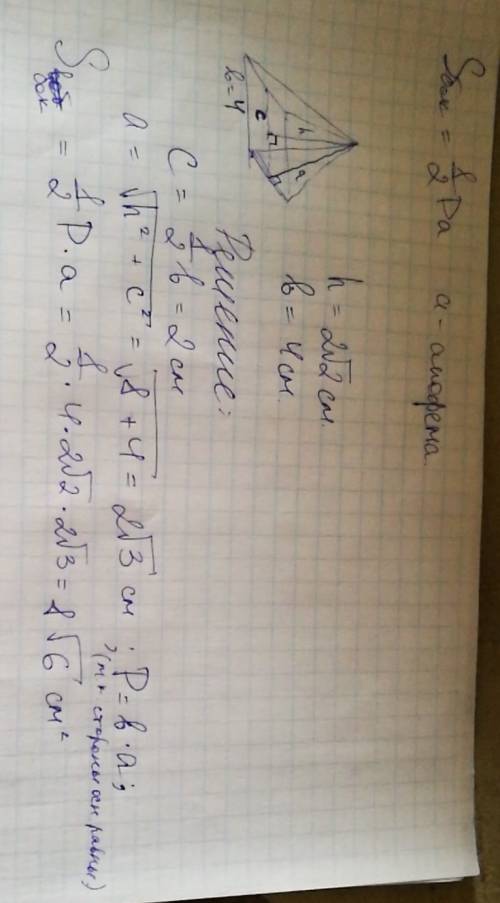 Sбок = 1/2 Pa    a - апофема
h = 2√2 см.
b = 4 см.
h
c
a
b=4
Решение:
C = 1/2 b = 2 см
a = √h² + c² = √8 + 4 = 2√3 см ; P = b · a ;
(т.к стороны осн равны)
Sбок = 1/2 P · a = 1/2 · 4 · 2√2 · 2√3 = 8√6 см²